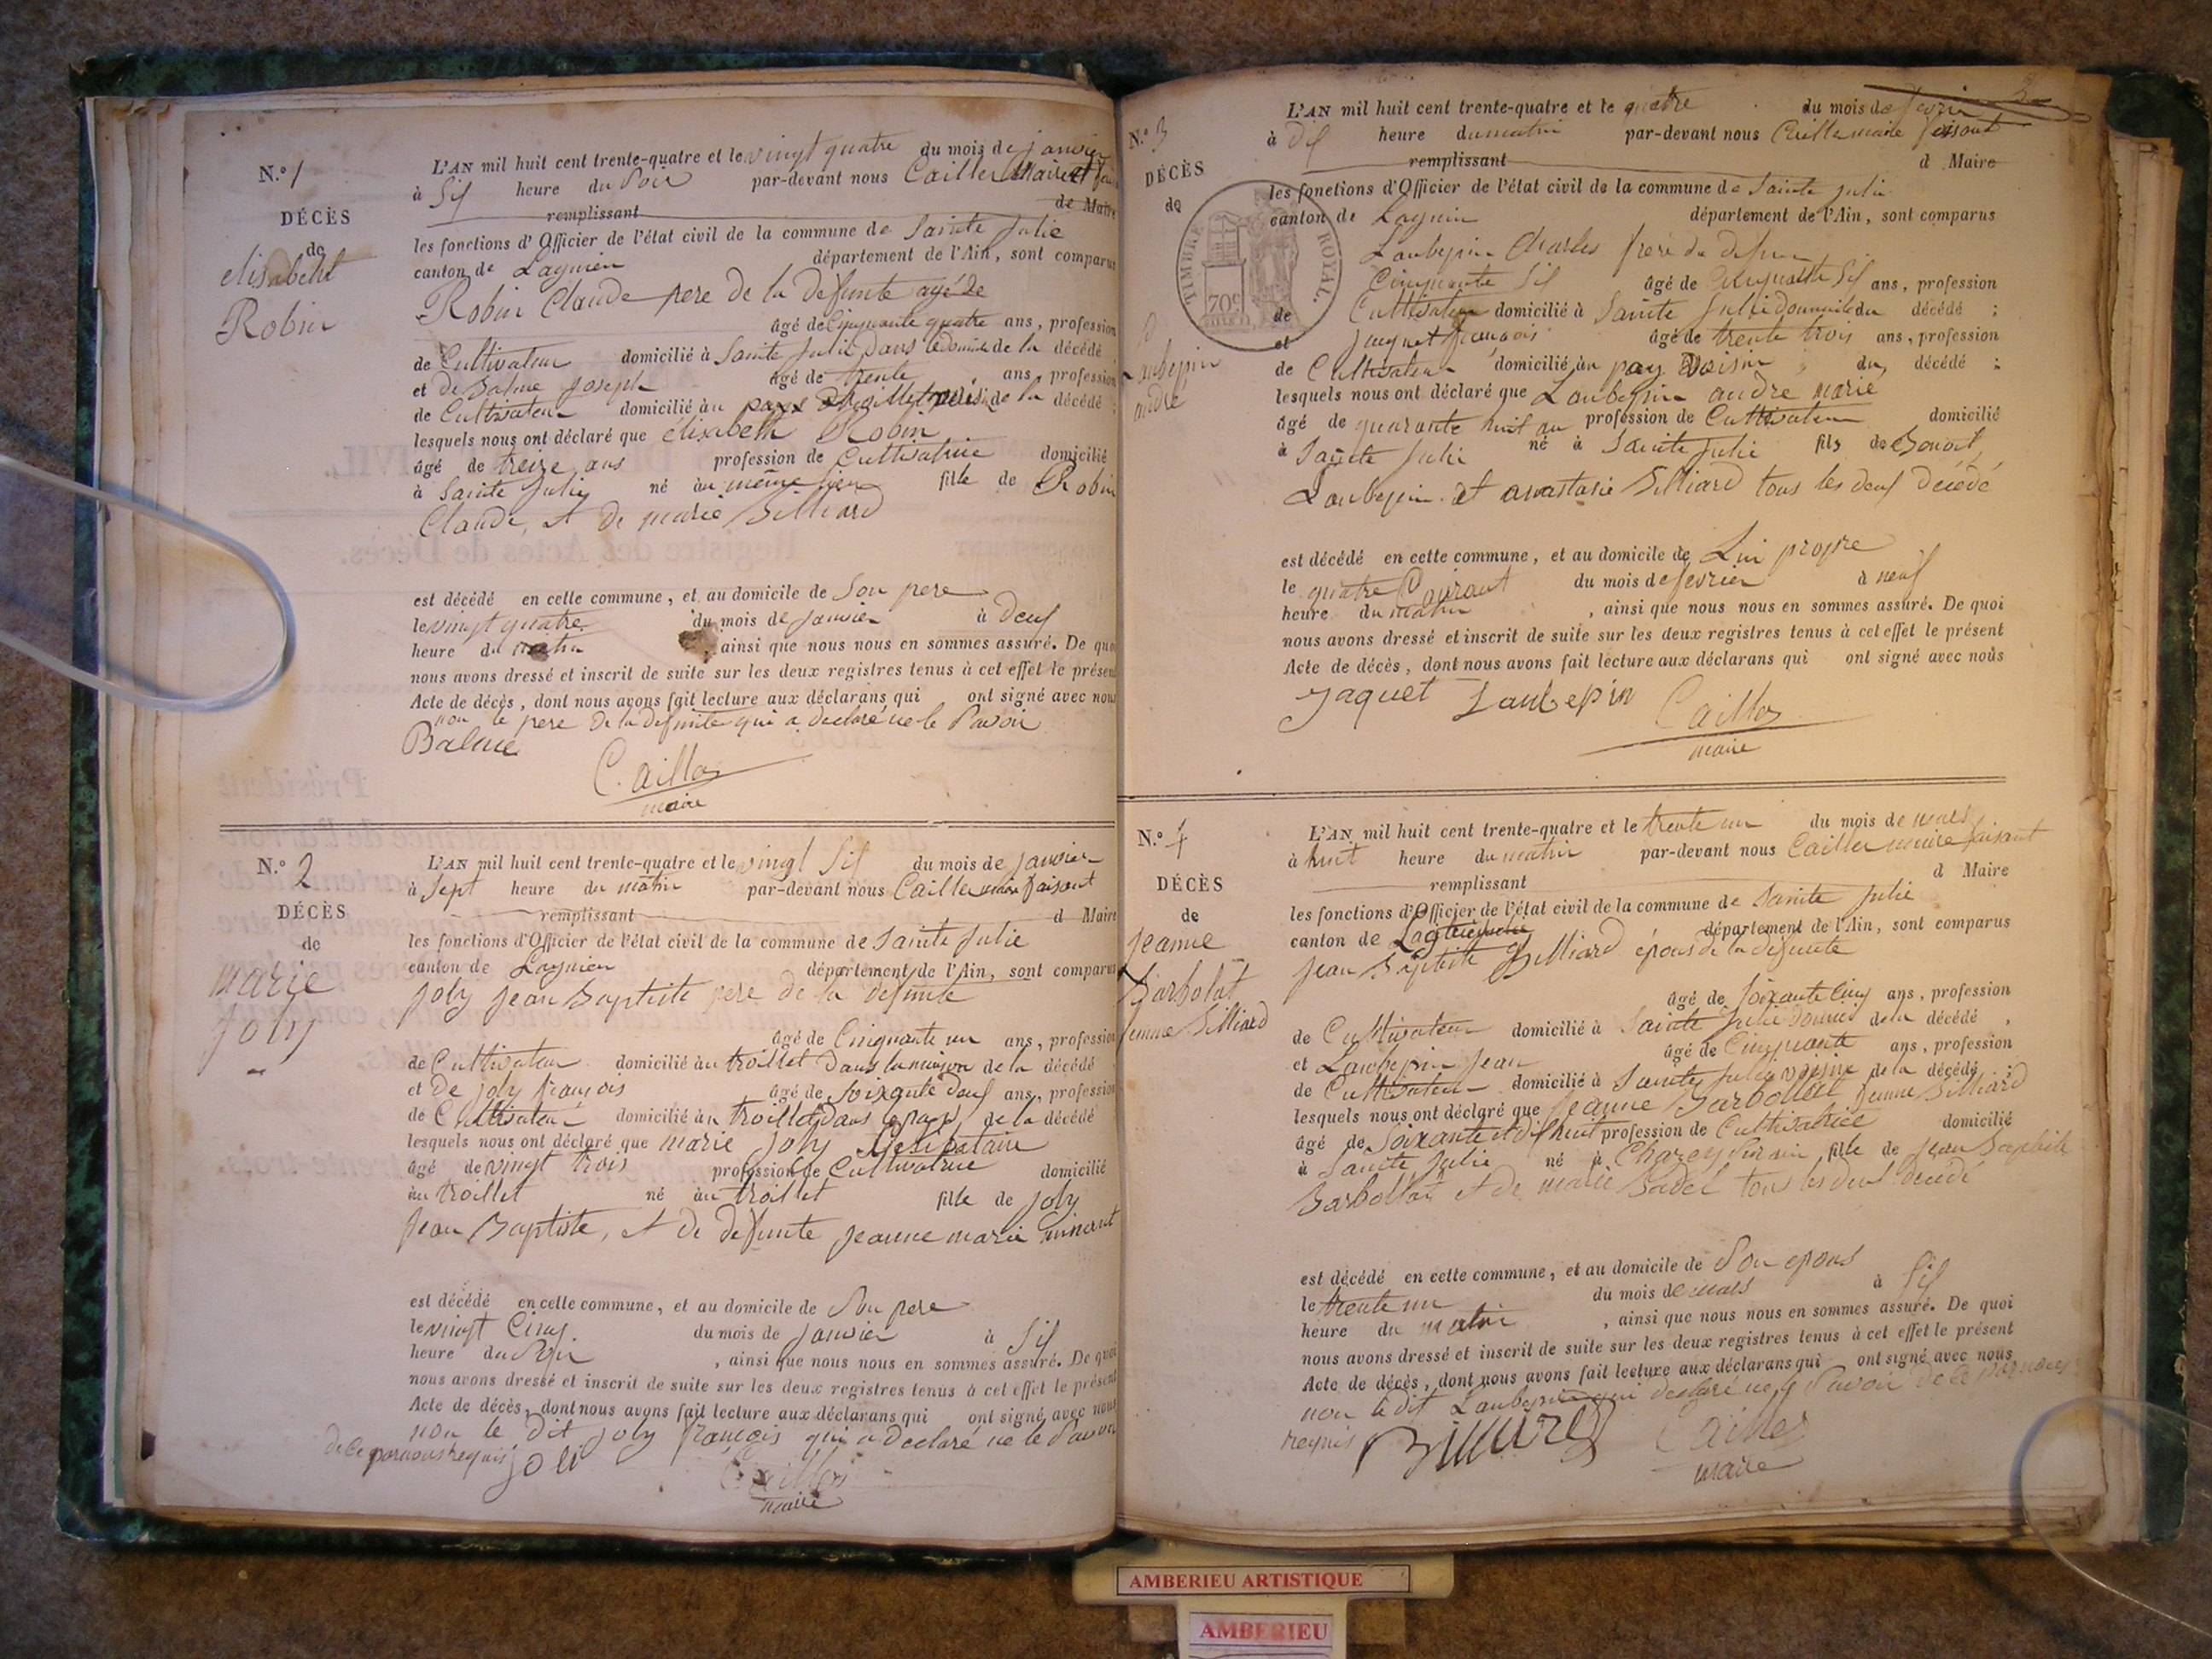 N.o 1
DÉCÈS
de
elisabeht
Robin
L'AN mil huit cent trente-quatre et le vingt quatre du mois de janvier
à Sif heure du Soir par-devant nous Cailler Maire et
remplissant de Maire
les fonctions d'Officier de l'état civil de la commune de Sainte Julie
canton de Lagnieu département de l'Ain, sont comparus
Robin Claude pere de la defunte agé de
âgé de Cinquante quatre ans, profession
de Cultivateur domicilié à Sainte Julie dans le domicile de la décédé
et de Balme Joseph âgé de trente ans, profession
de Cultivateur domicilié au de la décédé
lesquels nous ont déclaré que elisabeth Robin
âgé de treize ans profession de Cultivatrice domicilié
à Sainte Julie né au même lieu fille de Robin
Claude, et de marie Billiard
est décédé en cette commune, et au domicile de Son pere
le vingt quatre du mois de janvier à deuf
heure du matin ainsi que nous nous en sommes assuré. De quoi
nous avons dressé et inscrit de suite sur les deux registres tenus à cet effet le présent
Acte de décès, dont nous avons fait lecture aux déclarans qui ont signé avec nous
non le pere de la defunte qui a declaré ne le Savoir
Balme
Cailler
maire
N.o 2
DÉCÈS
de
marie
joly
L'AN mil huit cent trente-quatre et le vingt Sif du mois de janvier
à Sept heure du matin par-devant nous Cailler maire faisant
remplissant d Maire
les fonctions d'Officier de l'état civil de la commune de Sainte Julie
canton de Lagnieu département de l'Ain, sont comparus
joly jean Baptiste pere de la defunte
âgé de Cinquante un ans, profession
de Cultivateur domicilié au troillet dans la maison de la décédé
et De joly françois âgé de Soixante deuf ans, profession
de Cultivateur domicilié au troillet dans le pays de la décédé
lesquels nous ont déclaré que marie joly Celibataire
âgé de vingt trois profession de Cultivatrice domicilié
au troillet né au troillet fille de joly
jean Baptiste, et de defunte jeanne marie
est décédé en cette commune, et au domicile de Son pere
le vingt Cinq du mois de janvier à Sif
heure du Soir, ainsi que nous nous en sommes assuré. De quoi
nous avons dressé et inscrit de suite sur les deux registres tenus à cet effet le présent
Acte de décès, dont nous avons fait lecture aux déclarans qui ont signé avec nous
non le dit joly françois qui a declaré ne le Savoir
de ce par nous requis joli
Cailler
maire
N.o 3
DÉCÈS
de
Laubepin
andré
TIMBRE ROYAL.
70c.
L'AN mil huit cent trente-quatre et le quatre du mois de fevrier
à dif heure du matin par-devant nous Cailler maire faisant
remplissant d Maire
les fonctions d'Officier de l'état civil de la commune de Sainte Julie
canton de Lagnieu département de l'Ain, sont comparus
Laubepin Charles frere du defun
Cinquante Sif âgé de Cinquante Sif ans, profession
de Cultivateur domicilié à Sainte Julie domicile du décédé ;
et jaquet françois âgé de trente trois ans, profession
de Cultivateur domicilié au pay voisin du décédé ;
lesquels nous ont déclaré que Laubepin andre marie
âgé de quarante huit an profession de Cultivateur domicilié
à Sainte Julie né à Sainte Julie fils de Benoit
Laubepin et anastasie Billiard tous les deuf décédé
est décédé en cette commune, et au domicile de Lui propre
le quatre Courant du mois de fevrier à neuf
heure du matin, ainsi que nous nous en sommes assuré. De quoi
nous avons dressé et inscrit de suite sur les deux registres tenus à cet effet le présent
Acte de décès, dont nous avons fait lecture aux déclarans qui ont signé avec nous
Jaquet Laubepin Cailler
maire
N.o 4
DÉCÈS
de
jeanne
Barbolat
femme Billiard
L'AN mil huit cent trente-quatre et le trente un du mois de mars
à huit heure du matin par-devant nous Cailler maire faisant
remplissant d Maire
les fonctions d'Officier de l'état civil de la commune de Sainte Julie
canton de département de l'Ain, sont comparus
jean Baptiste Billiard épous de la defunte
âgé de Soixante Cinq ans, profession
de Cultivateur domicilié à Sainte Julie de la décédé,
et Laubepin jean âgé de Cinquante ans, profession
de Cultivateur domicilié à Sainte Julie voisin de la décédé ;
lesquels nous ont déclaré que jeanne Barbollat femme Billiard
âgé de Soixante et dif huit profession de Cultivatrice domicilié
à Sainte Julie né à Charey fille de jean Baptiste
Barbollat et de marie Badel tous les deuf decédé
est décédé en cette commune, et au domicile de Son epous
le trente un du mois de mars à Sif
heure du matin, ainsi que nous nous en sommes assuré. De quoi
nous avons dressé et inscrit de suite sur les deux registres tenus à cet effet le présent
Acte de décès, dont nous avons fait lecture aux déclarans qui ont signé avec nous
non le dit Laubepin qui declaré ne le Savoir de ce par nous
requis Cailler
maire
AMBERIEU ARTISTIQUE
AMBERIEU